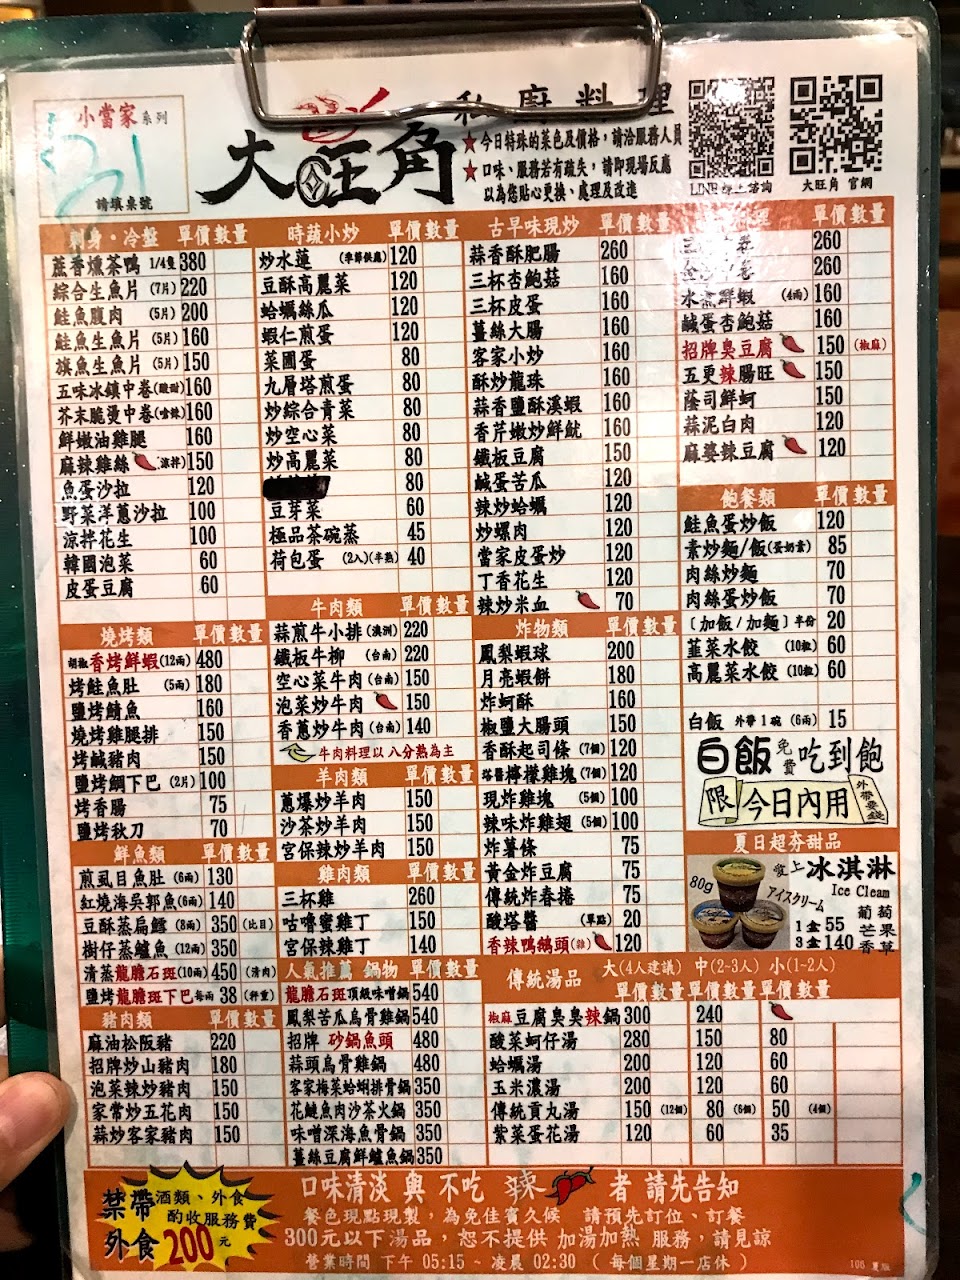 小當家系列
請填桌號
大旺角
私廚料理
★今日特殊的菜色及價格，請洽服務人員
★口味、服務若有疏失，請即現場反應
以為您貼心更換、處理及改進
大旺角 官網
刺身·冷盤 單價 數量
蔗香燻茶鴨 1/4隻 380
綜合生魚片 (7片) 220
鮭魚腹肉 (5片) 200
鮭魚生魚片 (5片) 160
旗魚生魚片 (5片) 150
五味冰鎮中卷(酸甜) 160
芥末脆燙中卷(嗆辣) 160
鮮嫩油雞腿 160
麻辣雞絲 (涼拌) 150
魚蛋沙拉 120
野菜洋蔥沙拉 100
涼拌花生 100
韓國泡菜 60
皮蛋豆腐 60
燒烤類 單價 數量
胡椒香烤鮮蝦(12兩) 480
烤鮭魚肚 (5兩) 180
鹽烤鯖魚 160
燒烤雞腿排 150
烤鹹豬肉 150
鹽烤鯛下巴 (2片) 100
烤香腸 75
鹽烤秋刀 70
鮮魚類 單價 數量
煎虱目魚肚 (6兩) 130
紅燒海吳郭魚(6兩) 140
豆酥蒸扁鱈 (8兩) 350 (比目)
樹仔蒸鱸魚 (12兩) 350
清蒸龍膽石斑(10兩) 450 (清肉)
鹽烤龍膽斑下巴 每兩 38 (秤重)
豬肉類 單價 數量
麻油松阪豬 220
招牌炒山豬肉 180
泡菜辣炒豬肉 150
家常炒五花肉 150
蒜炒客家豬肉 150
時蔬小炒 單價 數量
炒水蓮 (季節供應) 120
豆酥高麗菜 120
蛤蠣絲瓜 120
蝦仁煎蛋 120
菜圃蛋 80
九層塔煎蛋 80
炒綜合青菜 80
炒空心菜 80
炒高麗菜 80
80
豆芽菜 60
極品茶碗蒸 45
荷包蛋 (2入)(半熟) 40
牛肉類 單價 數量
蒜煎牛小排(澳洲) 220
鐵板牛柳 (台南) 220
空心菜牛肉(台南) 150
泡菜炒牛肉 150
香蔥炒牛肉(台南) 140
牛肉料理以八分熟為主
羊肉類 單價 數量
蔥爆炒羊肉 150
沙茶炒羊肉 150
宮保辣炒羊肉 150
雞肉類 單價 數量
三杯雞 260
咕嚕蜜雞丁 150
宮保辣雞丁 140
人氣推薦 鍋物 單價 數量
龍膽石斑頂級味噌鍋 540
鳳梨苦瓜烏骨雞鍋 540
招牌 砂鍋魚頭 480
蒜頭烏骨雞鍋 480
客家梅菜蛤蜊排骨鍋 350
花鰱魚肉沙茶火鍋 350
味噌深海魚骨鍋 350
薑絲豆腐鮮鱸魚鍋 350
古早味現炒 單價 數量
蒜香酥肥腸 260
三杯杏鮑菇 160
三杯皮蛋 160
薑絲大腸 160
客家小炒 160
酥炒龍珠 160
蒜香鹽酥溪蝦 160
香芹嫩炒鮮魷 160
鐵板豆腐 150
鹹蛋苦瓜 120
辣炒蛤蠣 120
炒螺肉 120
當家皮蛋炒 120
丁香花生 120
辣炒米血 70
炸物類 單價 數量
鳳梨蝦球 200
月亮蝦餅 180
炸蚵酥 160
椒鹽大腸頭 150
香酥起司條 (7個) 120
塔醬檸檬雞塊(7個) 120
現炸雞塊 (5個) 100
辣味炸雞翅 (5個) 100
炸薯條 75
黃金炸豆腐 75
傳統炸春捲 75
酸塔醬 (單點) 20
香辣鴨鵠頭(辣) 120
單價 數量
260
260
160
鹹蛋杏鮑菇 160
招牌臭豆腐 150 (椒麻)
五更辣腸旺 150
蔭司鮮蚵 150
蒜泥白肉 120
麻婆辣豆腐 120
飽餐類 單價 數量
鮭魚蛋炒飯 120
素炒麵/飯(蛋奶素) 85
肉絲炒麵 70
肉絲蛋炒飯 70
〔加飯/加麵〕半份 20
韮菜水餃 (10粒) 60
高麗菜水餃 (10粒) 60
白飯 外帶1碗 (6兩) 15
白飯免費吃到飽
限 今日內用 外帶要錢
夏日超夯甜品
80g
愛上冰淇淋
アイスクリーム
Ice Cleam
1盒55
3盒140
葡萄
芒果
香草
傳統湯品 大(4人建議) 中(2-3人) 小(1-2人)
單價 數量 單價 數量 單價 數量
椒麻豆腐臭臭辣鍋 300 240
酸菜蚵仔湯 280 150 80
蛤蠣湯 200 120 60
玉米濃湯 200 120 60
傳統貢丸湯 150 (12個) 80 (6個) 50 (4個)
紫菜蛋花湯 120 60 35
禁帶外食
酒類、外食
酌收服務費
200元
口味清淡 與 不吃 辣 者 請先告知
餐色現點現製，為免佳賓久候 請預先訂位、訂餐
300元以下湯品，恕不提供 加湯加熱 服務，請見諒
營業時間 下午 05:15 ~ 凌晨 02:30 ( 每個星期一店休 )